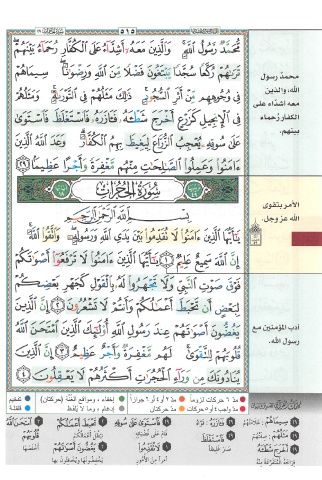 ٥١٥
مُّحَمَّدٌ رَّسُولُ ٱللَّهِ وَٱلَّذِينَ مَعَهُۥٓ أَشِدَّآءُ عَلَى ٱلْكُفَّارِ رُحَمَآءُ بَيْنَهُمْ
تَرَىٰهُمْ رُكَّعًا سُجَّدًا يَبْتَغُونَ فَضْلًا مِّنَ ٱللَّهِ وَرِضْوَٰنًا سِيمَاهُمْ
فِى وُجُوهِهِم مِّنْ أَثَرِ ٱلسُّجُودِ ذَٰلِكَ مَثَلُهُمْ فِى ٱلتَّوْرَىٰةِ وَمَثَلُهُمْ
فِى ٱلْإِنجِيلِ كَزَرْعٍ أَخْرَجَ شَطْـَٔهُۥ فَـَٔازَرَهُۥ فَٱسْتَغْلَظَ فَٱسْتَوَىٰ
عَلَىٰ سُوقِهِۦ يُعْجِبُ ٱلزُّرَّاعَ لِيَغِيظَ بِهِمُ ٱلْكُفَّارَ وَعَدَ ٱللَّهُ ٱلَّذِينَ
ءَامَنُوا۟ وَعَمِلُوا۟ ٱلصَّـٰلِحَـٰتِ مِنْهُم مَّغْفِرَةً وَأَجْرًا عَظِيمًۢا ٢٩
سُورَةُ الحُجُرَاتِ
بِسْمِ ٱللَّهِ ٱلرَّحْمَـٰنِ ٱلرَّحِيمِ
يَـٰٓأَيُّهَا ٱلَّذِينَ ءَامَنُوا۟ لَا تُقَدِّمُوا۟ بَيْنَ يَدَىِ ٱللَّهِ وَرَسُولِهِۦ وَٱتَّقُوا۟ ٱللَّهَ
إِنَّ ٱللَّهَ سَمِيعٌ عَلِيمٌ ١ يَـٰٓأَيُّهَا ٱلَّذِينَ ءَامَنُوا۟ لَا تَرْفَعُوٓا۟ أَصْوَٰتَكُمْ
فَوْقَ صَوْتِ ٱلنَّبِىِّ وَلَا تَجْهَرُوا۟ لَهُۥ بِٱلْقَوْلِ كَجَهْرِ بَعْضِكُمْ
لِبَعْضٍ أَن تَحْبَطَ أَعْمَـٰلُكُمْ وَأَنتُمْ لَا تَشْعُرُونَ ٢ إِنَّ ٱلَّذِينَ
يَغُضُّونَ أَصْوَٰتَهُمْ عِندَ رَسُولِ ٱللَّهِ أُو۟لَـٰٓئِكَ ٱلَّذِينَ ٱمْتَحَنَ ٱللَّهُ
قُلُوبَهُمْ لِلتَّقْوَىٰ لَهُم مَّغْفِرَةٌ وَأَجْرٌ عَظِيمٌ ٣ إِنَّ ٱلَّذِينَ
يُنَادُونَكَ مِن وَرَآءِ ٱلْحُجُرَٰتِ أَكْثَرُهُمْ لَا يَعْقِلُونَ ٤
محمدٌ رسول
الله، والذين
معه أشداء على
الكفار رُحماء
بينهم.
الأمر بتقوى
الله عز وجل.
أدب المؤمنين مع
رسول الله.
مدّ ٦ حركات لزوماً
مدّ ٢ أو ٤ أو ٦ جوازاً
إخفاء، ومواقع الغنّة (حركتان)
تفخيم
مدّ واجب ٤ أو ٥ حركات
مدّ حركتان
إدغام، وما لا يُلفظ
قلقلة
سِيمَاهُمْ
مَثَلُهُمْ
أَخْرَجَ شَطْأَهُ
فَاسْتَغْلَظَ
فَاسْتَوَى عَلَى سُوقِهِ
تَحْبَطَ أَعْمَالُكُمْ
يَغُضُّونَ أَصْوَاتَهُمْ
امْتَحَنَ اللَّهُ
قُلُوبَهُمْ